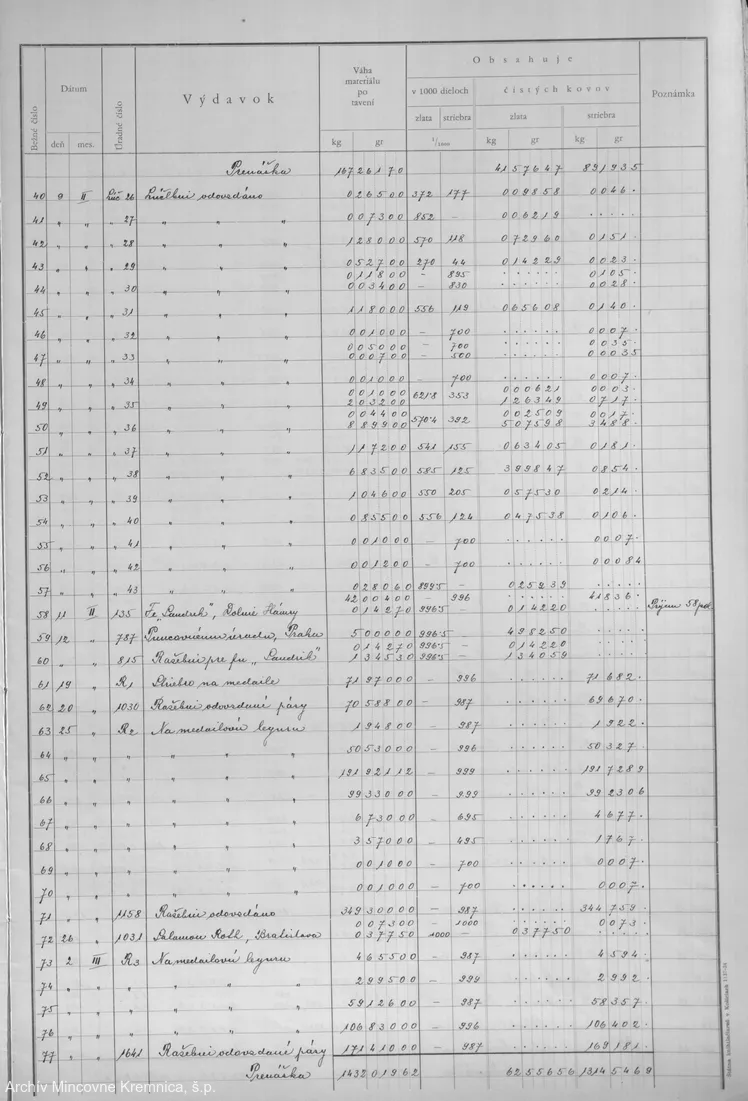 Obsahuje
Bežné číslo Dátum Úradné číslo Výdavok Váha materiálu po tavení v 1000 dieloch čistých kovov Poznámka
zlata striebra zlata striebra
deň mes. kg gr 1/1000 kg gr kg gr
Prenáška 167 261 70 41 576 47 891 935
40 9 II Lúč 26 Lúčebni odovzdáno 0 265 00 372 177 0 098 58 0 046 ·
41 „ „ „ 27 „ „ „ 0 073 00 852 – 0 062 19 · · · · ·
42 „ „ „ 28 „ „ „ 1 280 00 570 118 0 729 60 0 151 ·
43 „ „ „ 29 „ „ „ 0 527 00 270 44 0 142 29 0 023 ·
0 118 00 – 895 · · · · · · 0 105 ·
44 „ „ „ 30 „ „ „ 0 034 00 – 830 · · · · · · 0 028 ·
45 „ „ „ 31 „ „ „ 1 180 00 556 119 0 656 08 0 140 ·
46 „ „ „ 32 „ „ „ 0 010 00 – 700 · · · · · · 0 007 ·
0 050 00 – 700 · · · · · · 0 035 ·
47 „ „ „ 33 „ „ „ 0 007 00 – 500 · · · · · · 0 003 5
48 „ „ „ 34 „ „ „ 0 010 00 – 700 · · · · · · 0 007 ·
0 010 00 621·8 353 0 006 21 0 003 ·
49 „ „ „ 35 „ „ „ 2 032 00 1 263 49 0 717 ·
0 044 00 570·4 392 0 025 09 0 017 ·
50 „ „ „ 36 „ „ „ 8 899 00 5 075 98 3 488 ·
51 „ „ „ 37 „ „ „ 1 172 00 541 155 0 634 05 0 181 ·
52 „ „ „ 38 „ „ „ 6 835 00 585 125 3 998 47 0 854 ·
53 „ „ „ 39 „ „ „ 1 046 00 550 205 0 575 30 0 214 ·
54 „ „ „ 40 „ „ „ 0 855 00 556 124 0 475 38 0 106 ·
55 „ „ „ 41 „ „ „ 0 010 00 – 700 · · · · · · 0 007 ·
56 „ „ „ 42 „ „ „ 0 012 00 – 700 · · · · · · 0 008 4
57 „ „ „ 43 „ „ „ 0 280 60 899·5 – 0 252 39 · · · · ·
42 004 00 – 996 · · · · · · 41 836 ·
58 11 II 135 Fe „Sandrik“, Dolné Hámry 0 142 70 996·5 – 0 142 20 · · · · · Príjem 58 pol
59 12 „ 787 Puncovnému úradu, Praha 5 000 00 996·5 – 4 982 50 · · · · ·
0 142 70 996·5 – 0 142 20 · · · · ·
60 „ „ 815 Razebni pre fu „Sandrik“ 1 345 30 996·5 – 1 340 59 · · · · ·
61 19 „ R1 Striebro na medaile 71 970 00 – 996 · · · · · · 71 682 ·
62 20 „ 1030 Razebni odovzdané páry 70 588 00 – 987 · · · · · · 69 670 ·
63 25 „ R2 Na medailovú leguru 1 948 00 – 987 · · · · · · 1 922 ·
64 „ „ „ „ „ 50 530 00 – 996 · · · · · · 50 327 ·
65 „ „ „ „ „ 191 921 12 – 999 · · · · · · 191 728 9
66 „ „ „ „ „ 99 330 00 – 999 · · · · · · 99 230 6
67 „ „ „ „ „ 6 730 00 – 695 · · · · · · 4 677 ·
68 „ „ „ „ „ 3 570 00 – 495 · · · · · · 1 767 ·
69 „ „ „ „ „ 0 010 00 – 700 · · · · · · 0 007 ·
70 „ „ „ „ „ 0 010 00 – 700 · · · · · · 0 007 ·
71 „ „ 1158 Razebni odovzdáno 349 300 00 – 987 · · · · · · 344 759 ·
0 073 00 – 1000 · · · · · · 0 073 ·
72 26 „ 1031 Salamon Roth, Bratislava 0 377 50 1000 – 0 377 50 · · · · ·
73 2 III R3 Na medailovú leguru 4 655 00 – 987 · · · · · · 4 594 ·
74 „ „ „ „ „ 2 995 00 – 999 · · · · · · 2 992 ·
75 „ „ „ „ „ 59 126 00 – 987 · · · · · · 58 357 ·
76 „ „ „ „ „ 106 830 00 – 996 · · · · · · 106 402 ·
77 „ „ 1641 Razebni odovzdané páry 171 410 00 – 987 · · · · · · 169 181 ·
Prenáška 1432 019 62 62 556 56 1314 546 9
Archív Mincovne Kremnica, š.p.